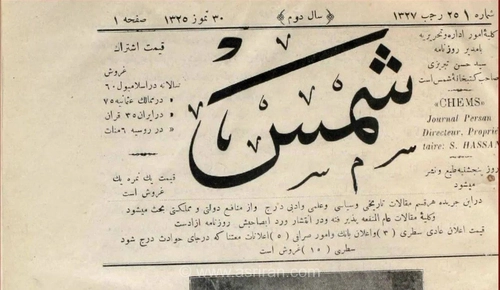 شماره ۱ ۲۵ رجب ۱۳۲۷ ﴿ سال دوم ﴾ ۳۰ تموز ۱۳۲۵ صفحه ۱
کلیهٔ امور اداره و تحریریه
بامدیر روزنامه
سید حسن تبریزی
صاحب کتبخانهٔ شمس است
«CHEMS»
Journal Persan
Directeur, Proprié
taire: S. HASSAN
روز پنجشنبه طبع و نشر
میشود
شمس
قیمت اشتراك
غروش
سالانه در اسلامبول ۶۰
« در ممالك عثمانیه ۷۵
« در ایران ۳۵ قران
« در روسیه ۶ منات
قیمت یك نمره یك
غروش است
در این جریده هرقسم مقالات تاریخی و سیاسی وعلمی وادبی درج و از منافع دولتی و مملکتی بحث میشود
وکلیهٔ مقالات عام المنفعه پذیرفته و در انتشار و رد و اصلاحش روزنامه آزادست
قیمت اعلان عادی سطری (۳) واعلان بانك وامور صرافی (۵) اعلانات معتنا که در جای حوادث درج شود
سطری (۱۰) غروش است
www.asriran.com